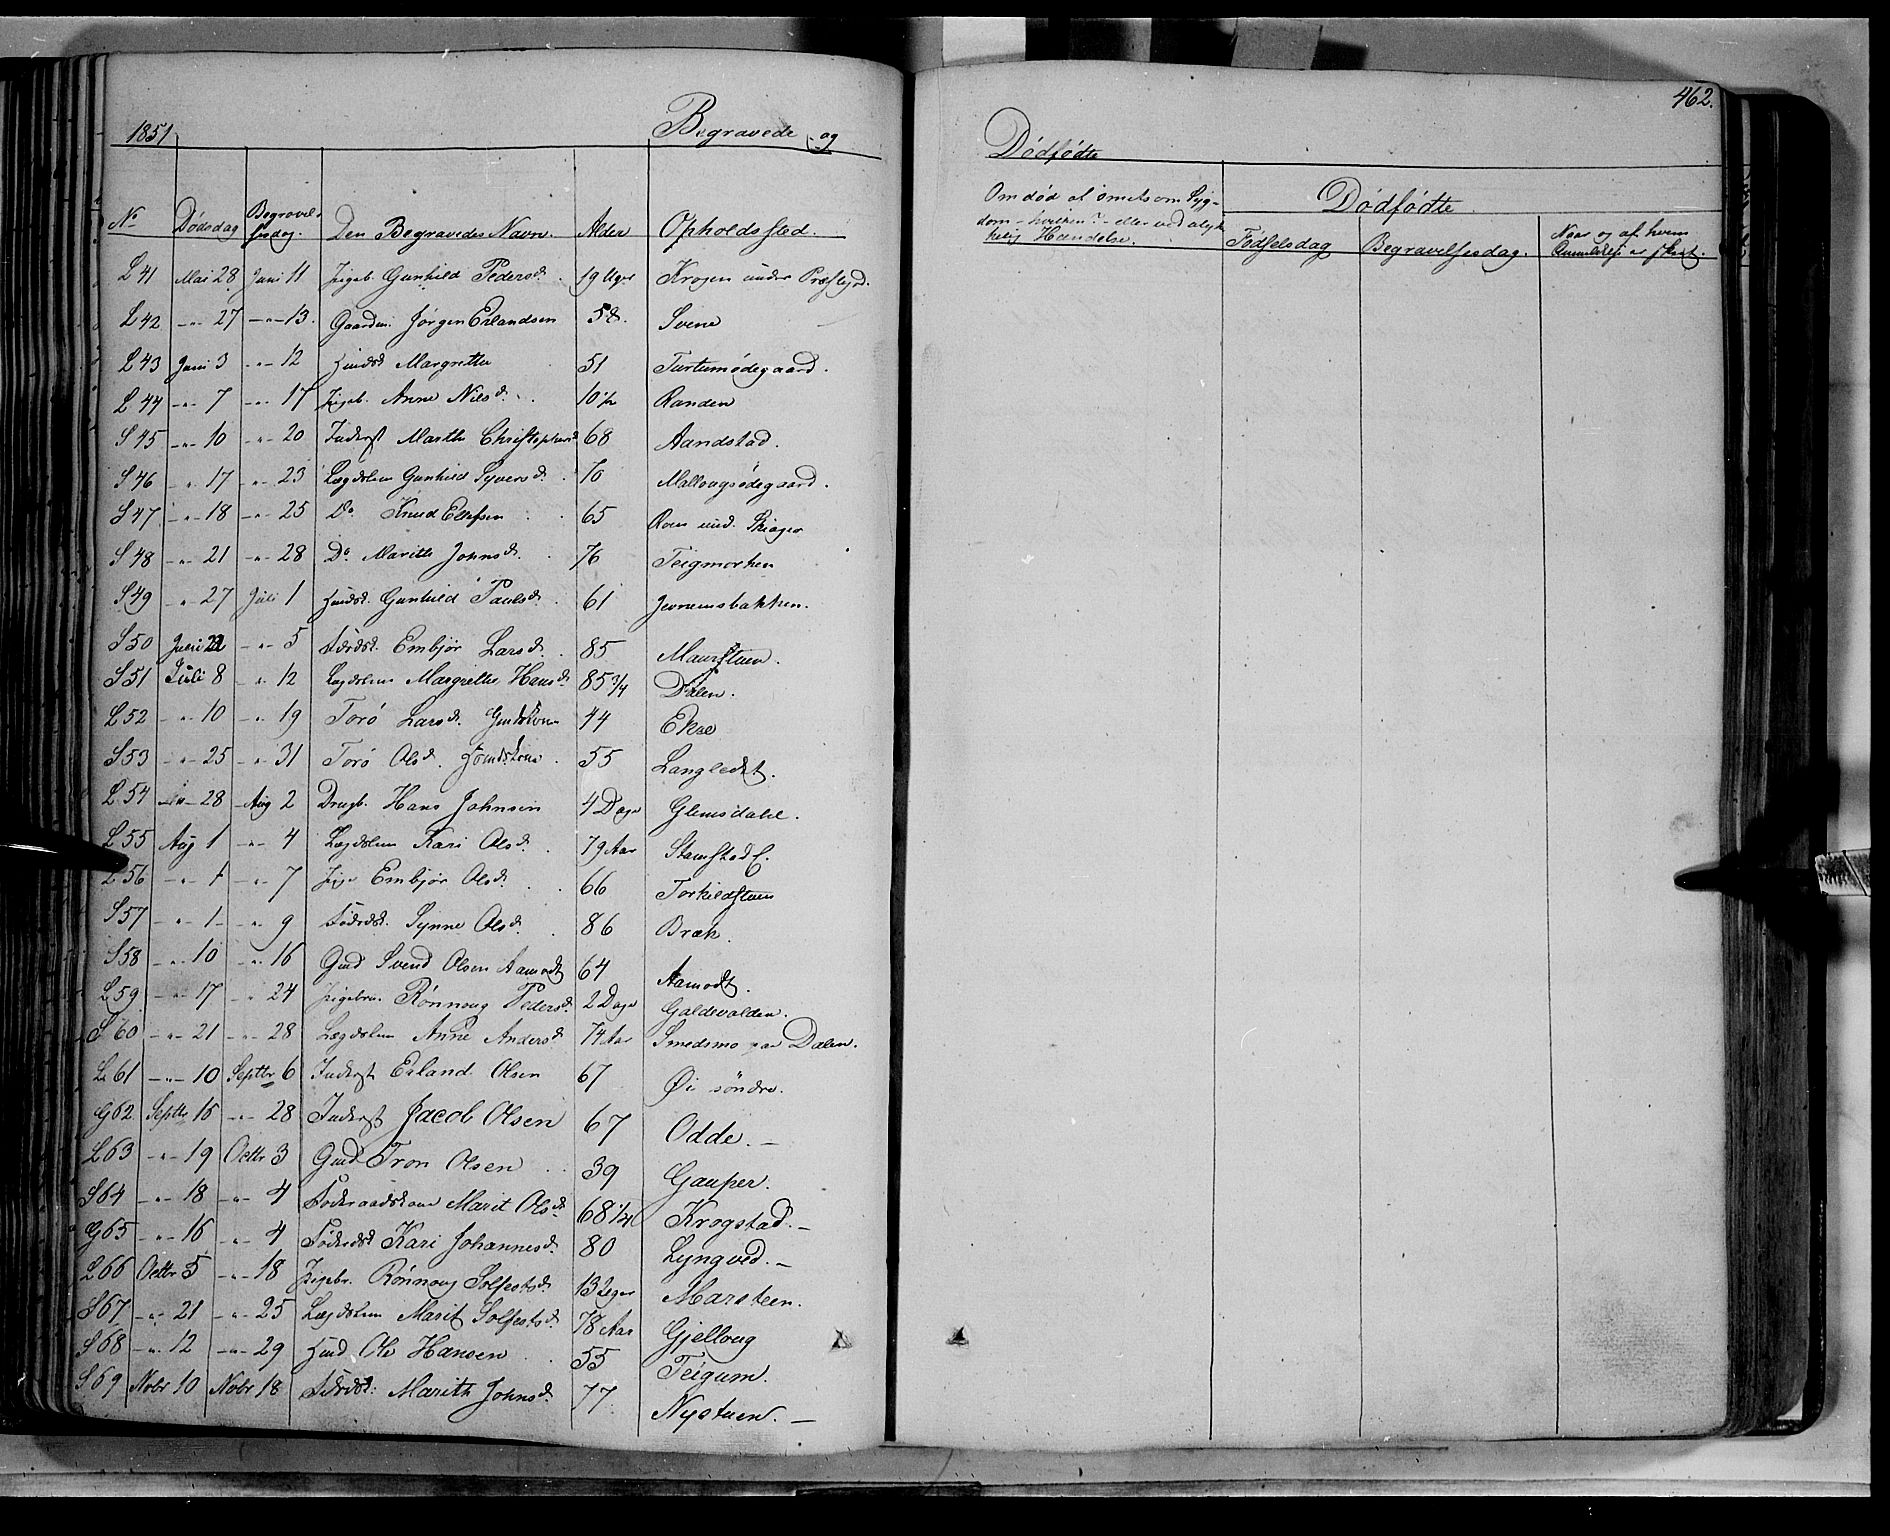 1851 Begravede og
No Dødsdag Begravelsesdag. Den Begravedes Navn. Alder Opholdssted.
L 41 Mai 28 Juni 11 Pigeb. Gunhild Pedersd. 19 Uger Krogen under Præstegd.
L 42 -"- 27 -"- 13. Gaardm. Jørgen Erlandsen 58. Svene
L 43 Juni 3 -"- 12 Huusk Margrethe 51 Turtumødegaard.
L 44 -"- 7 -"- 17 Pigeb. Anne Nilsd. 10 1/2 Randen
S 45 -"- 10 -"- 20 Inderst Marthe Christophersd 68 Aandstad.
S 46 -"- 17 -"- 23 Lægdslem Gunhild Syversd. 70 Mallougsødegaard.
S 47 -"- 18 -"- 25 Do Knud Ellefsen 65 Roen und. Skiager
S 48 -"- 21 -"- 28 Do Marithe Johnsd. 76 Teigmorken
S 49 -"- 27 Juli 1 Huusk. Gunhild Paulsd. 61 Jevnemsbakken.
S 50 Juni 22 -"- 5 Føderdsk. Embjør Larsd. 85 Maurstuen.
S 51 Juli 8 -"- 12 Lægdslem Margrethe Hansd. 85 3/4 Dalen.
L 52 -"- 10 -"- 19 Torø Larsd. Gmdskone 44 Ekre
S 53 -"- 25 -"- 31 Torø Olsd. Huusdskone 55 Langledet.
L 54 -"- 28 Aug 2 Drengb. Hans Johnsen 4 Dage Glimsdahl.
L 55 Aug 1 -"- 4 Lægdslem Kari Olsd. 79 Aar Stamstad
L 56 -"- 1 -"- 7 Pige Embjør Olsd. 66 Torkildstuen
S 57 -"- 1 -"- 9 Føderdsk. Synne Olsd. 86 Bræk.
S 58 -"- 10 -"- 16 Gmd Svend Olsen Aamodt 64 Aamodt.
L 59 -"- 17 -"- 24 Pigebn. Rønnoug Pedersd. 2 Dage Galdevolden.
S 60 -"- 21 -"- 28 Lægdslem Anne Andersd. 74 Aar Smedsmo paa Dalen.
L 61 -"- 10 Septbr 6 Inderst Erland Olsen 67 Øi søndre.
G 62 Septbr 16 -"- 28 Inderst Jacob Olsen 67 Odde. -
L 63 -"- 19 Octbr 3 Gmd Tron Olsen 39 Gauper.
S 64 -"- 18 -"- 4 Føderaadskone Marit Olsd. 68 1/4 Krogstad. -
G 65 -"- 16 -"- 4 Føderdsk Kari Johannesd. 80 Lyngved. -
L 66 Octbr 5 -"- 18 Pigebr. Rønnoug Solfestsd. 13 Uger Marsteen.
S 67 -"- 21 -"- 25 Lægdslem Marit Solfestsd. 78 Aar Gjelloug
S 68 -"- 12 -"- 29 Hmd Ole Hansen 55 Teigum.
S 69 Nobr 10 Nobr 18 Føderdsk. Marith Johnsd. 77 Nystuen. -
462.
Dødfødte
Om død af smitsom Syg-
dom - hvilken? - eller ved ulyk-
kelig Hændelse.
Dødfødte
Fødselsdag Begravelsesdag. Naar og af hvem
Anmeldelse er skeet.